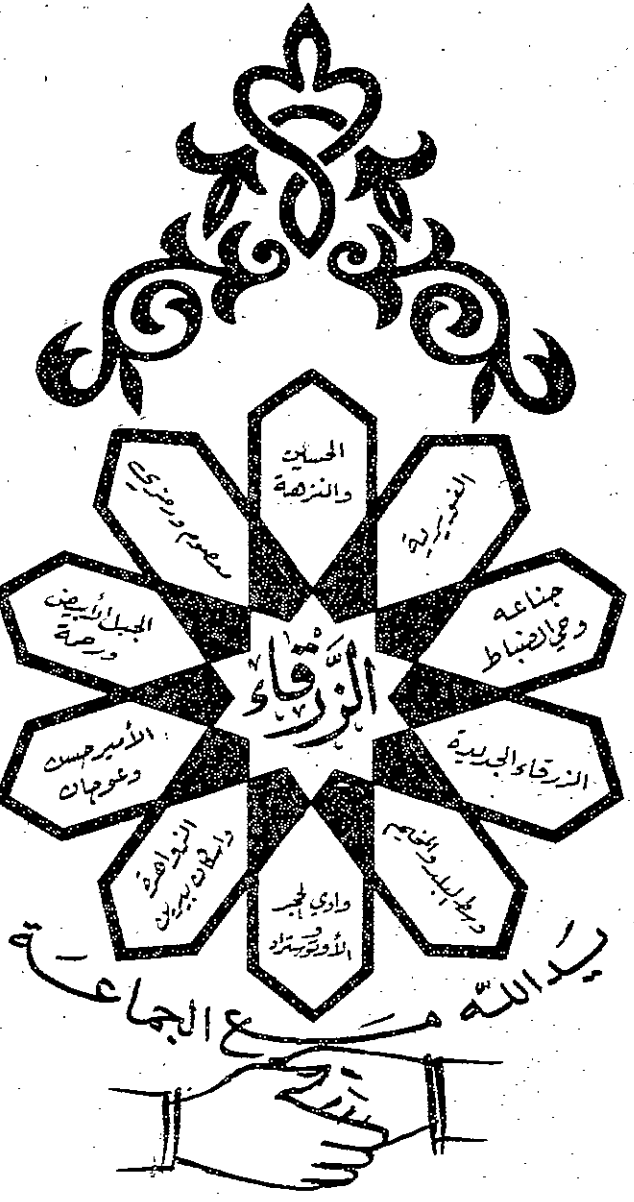 الحسين
والنزهة
الغويرية
جناعه
وحي الضباط
الزرقاء الجديدة
وسط البلد والمخيم
وادي الحجر
و
الأوتوستراد
الزواهرة
واسكان بيرين
الأمير حسن
وعوجان
الجبل الأبيض
ورحمة
معصوم ورمزي
الزَّرْقَاء
يَد اللّه مَع الجماعَة